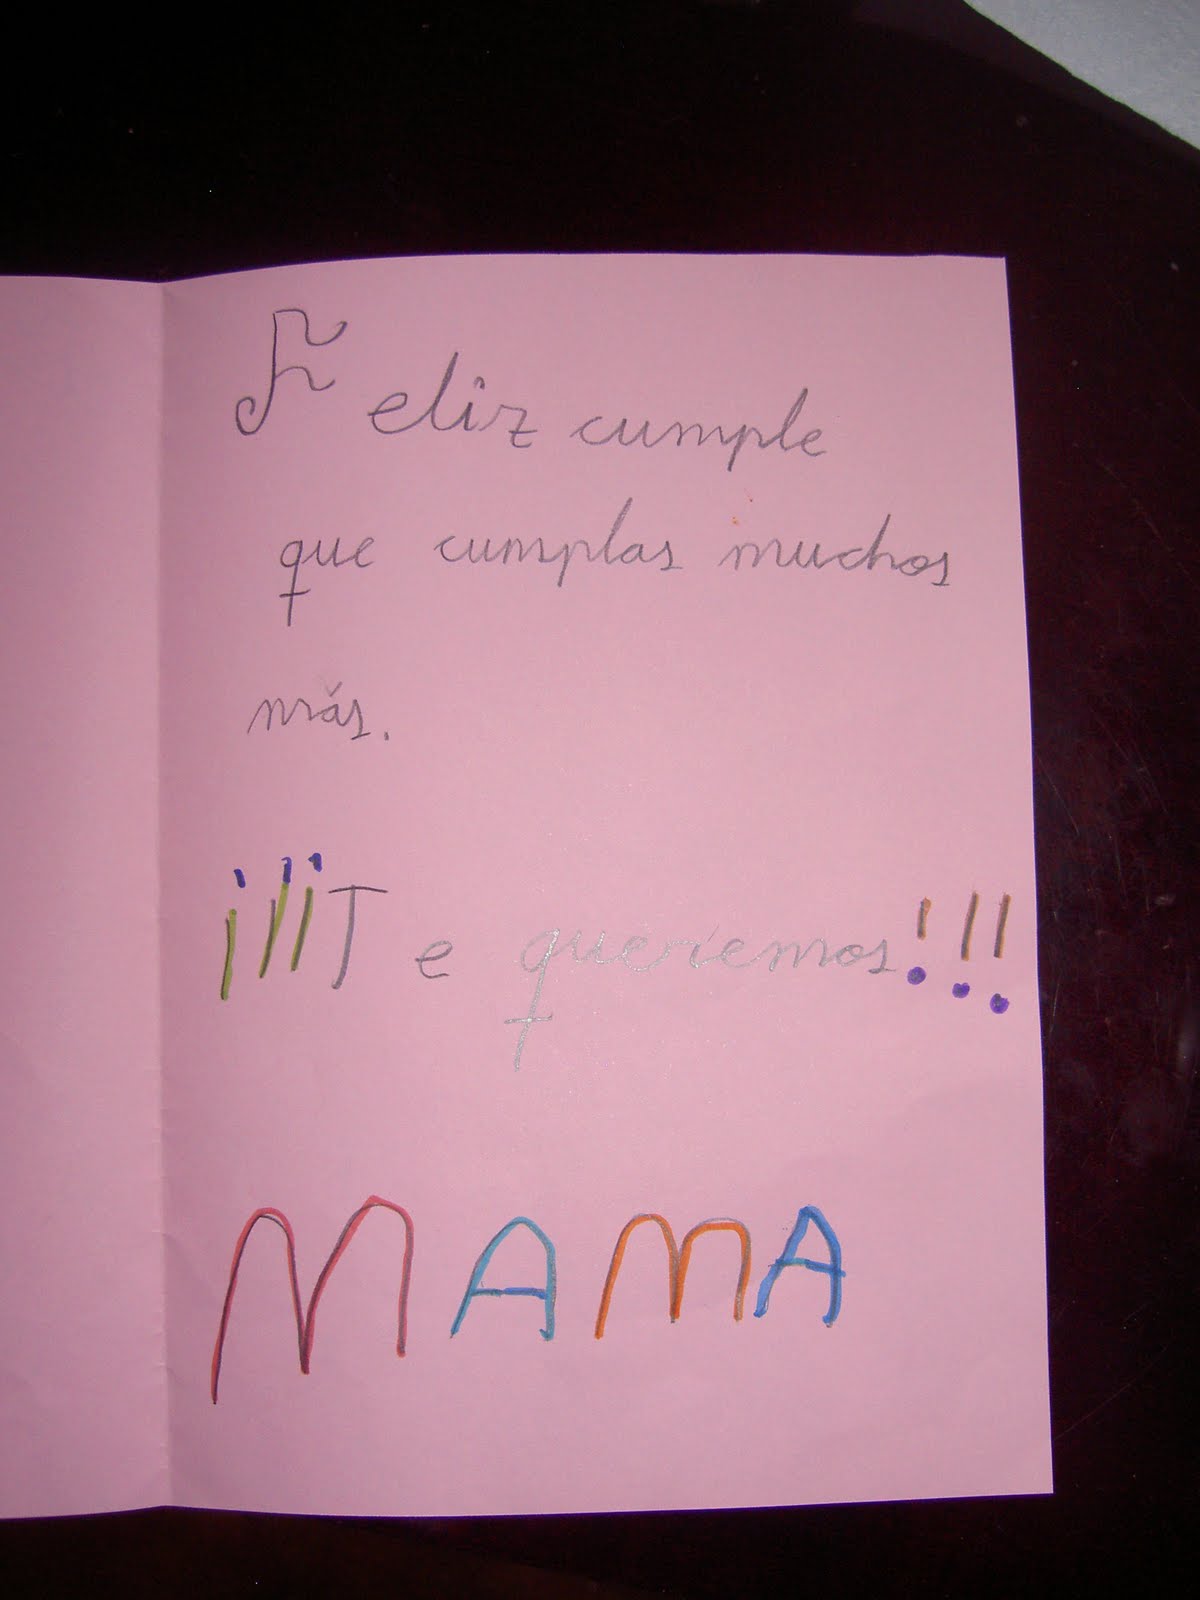 Feliz cumple
que cumplas muchos
más.
¡¡¡Te queremos!!!
MAMA